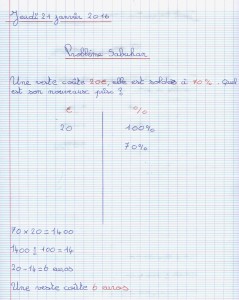 Jeudi 21 janvier 2016
Problème
Une veste coûte 20€, elle est soldée à 70%. Quel
est son nouveau prix ?
€ %
20 100%
70%
70 x 20 = 1400
1400 : 100 = 14
20 - 14 = 6 euros
Une veste coûte 6 euros